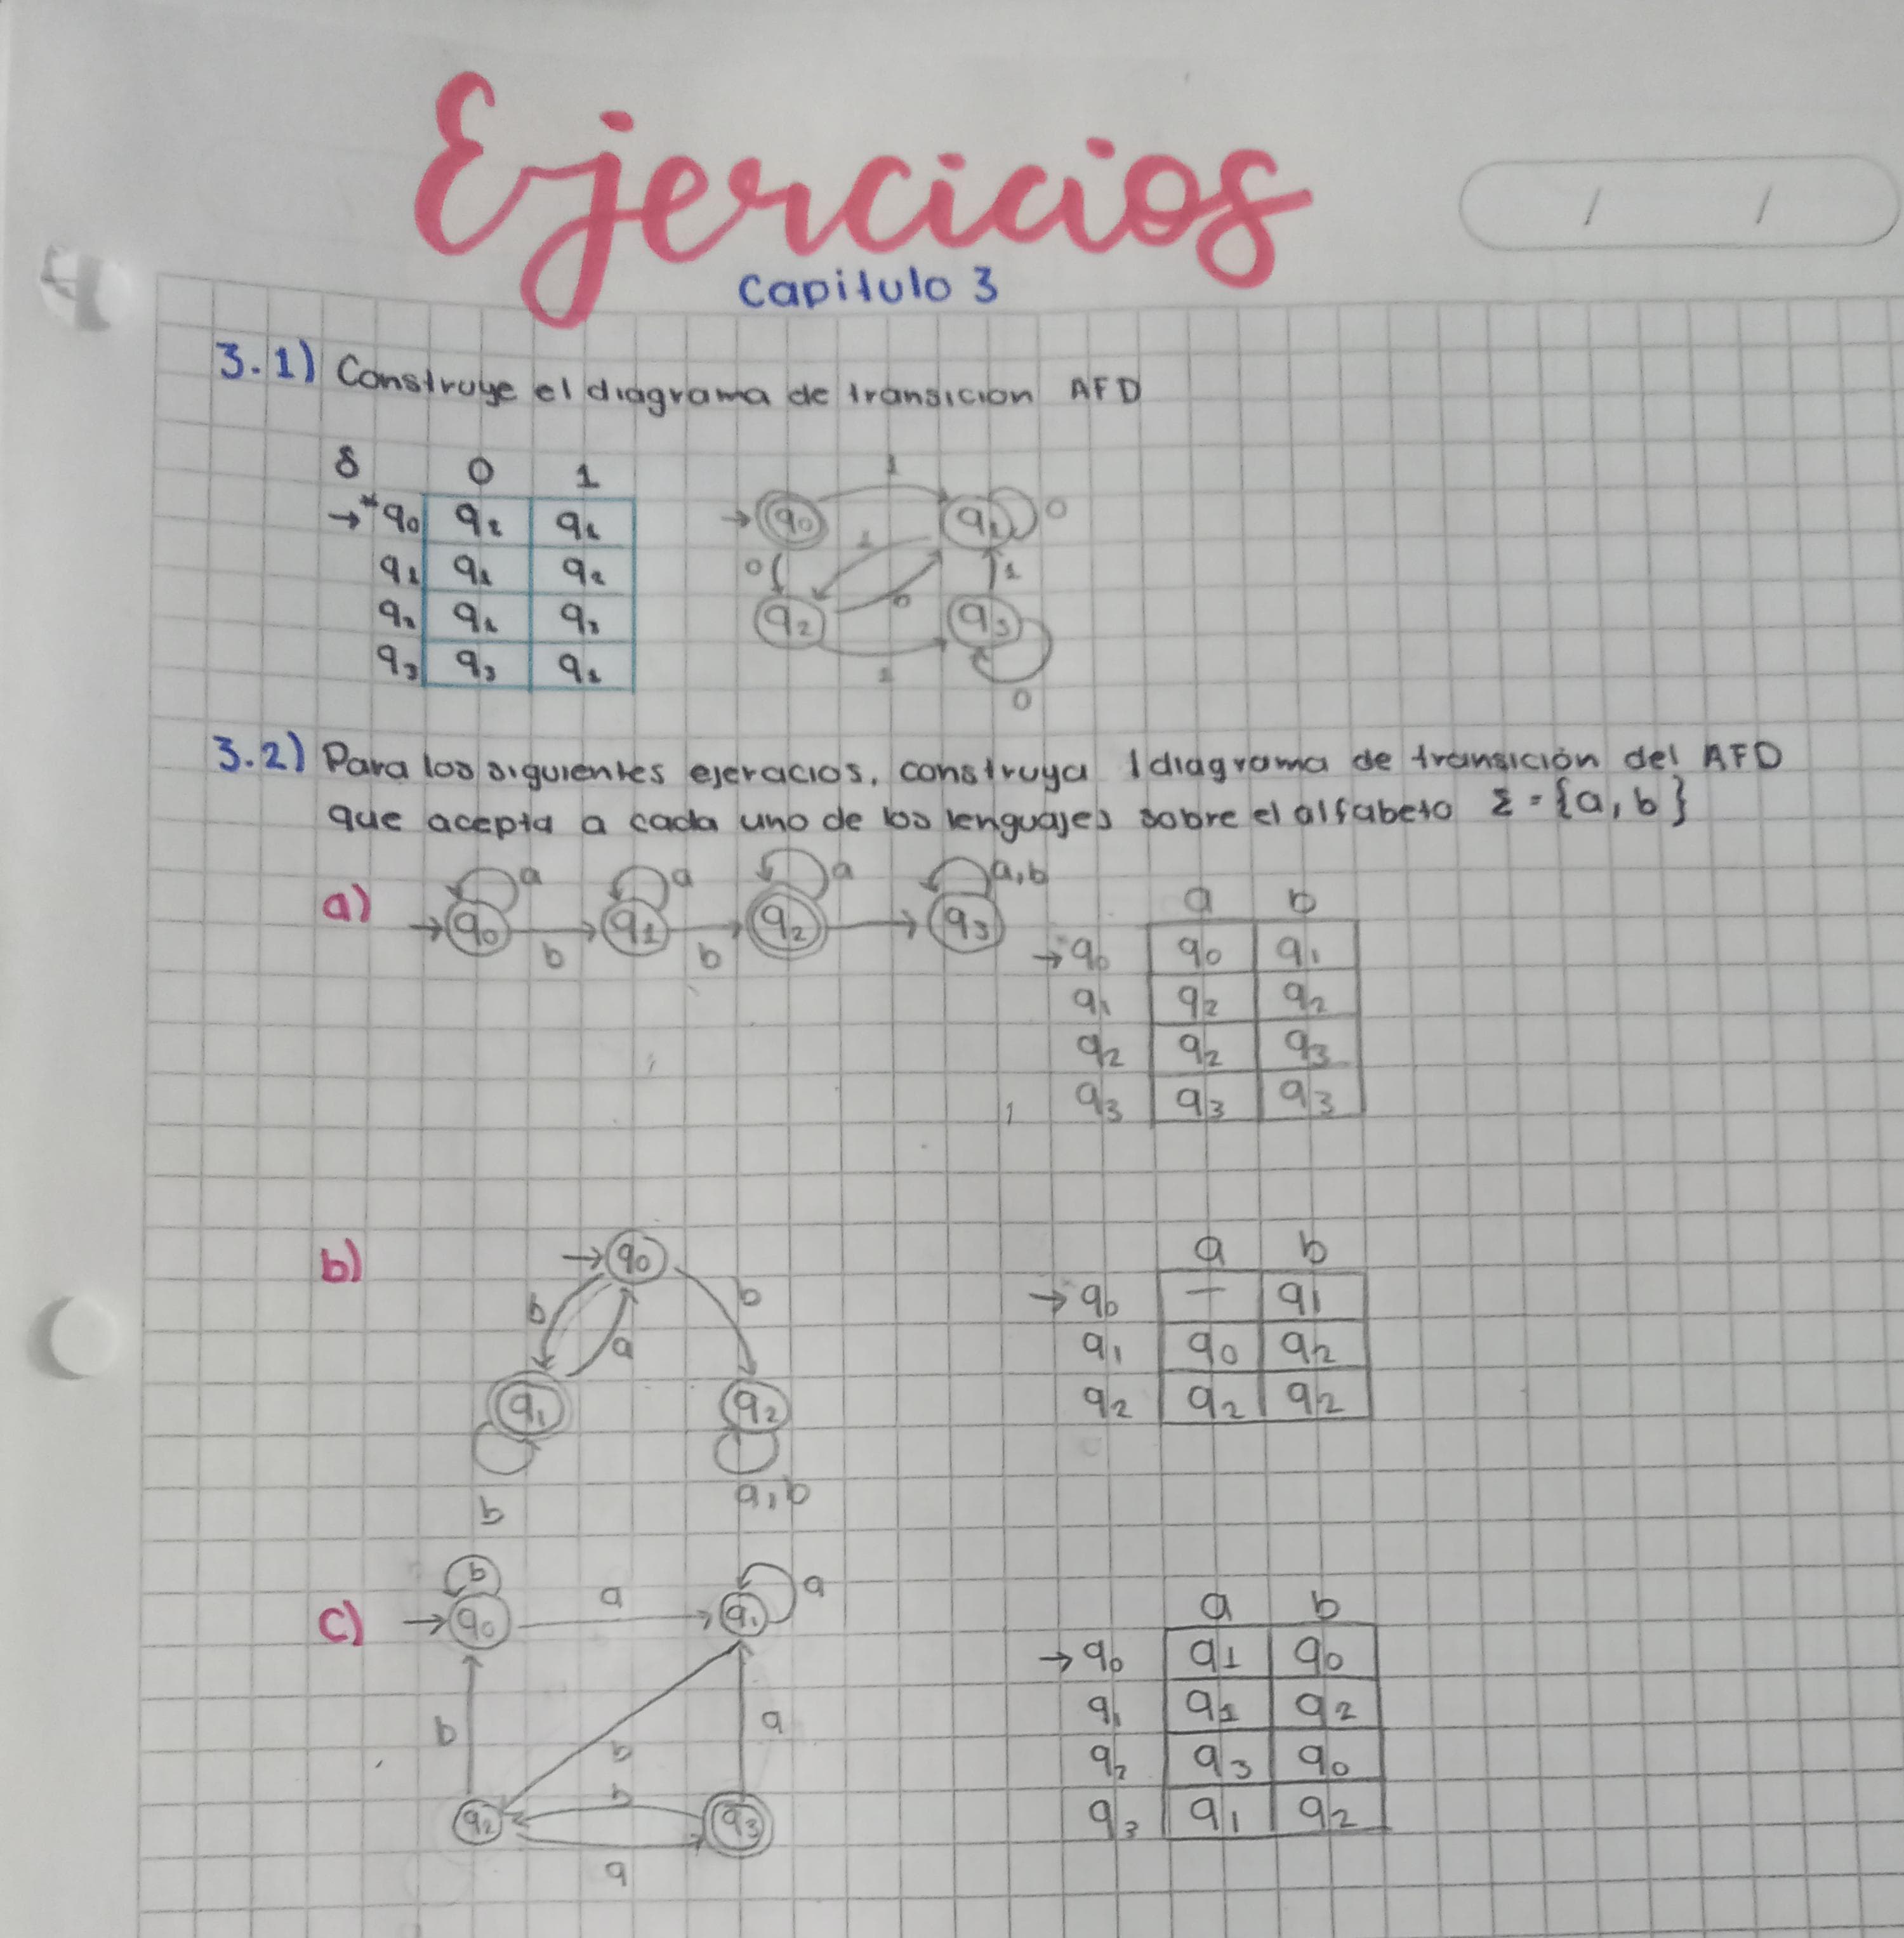 Ejercicios
Capitulo 3
/ /
3.1) Construye el diagrama de transicion AFD
δ 0 1
→*q0 q2 q1
q1 q1 q2
q2 q1 q3
q3 q3 q1
→ q0 1 q1 0
0 1 0 1
q2 1 q3 0
3.2) Para los siguientes ejercicios, construya 1 diagrama de transición del AFD
que acepta a cada uno de los lenguajes sobre el alfabeto Σ = {a, b}
a) → q0 a b q1 a b q2 a q3 a,b
a b
→ q0 q0 q1
q1 q2 q2
q2 q2 q3
q3 q3 q3
b) → q0
b a b
q1 q2
b a,b
a b
→ q0 — q1
q1 q0 q2
q2 q2 q2
c) → q0 b a q1 a
b b a
q2 b a q3
a b
→ q0 q1 q0
q1 q1 q2
q2 q3 q0
q3 q1 q2